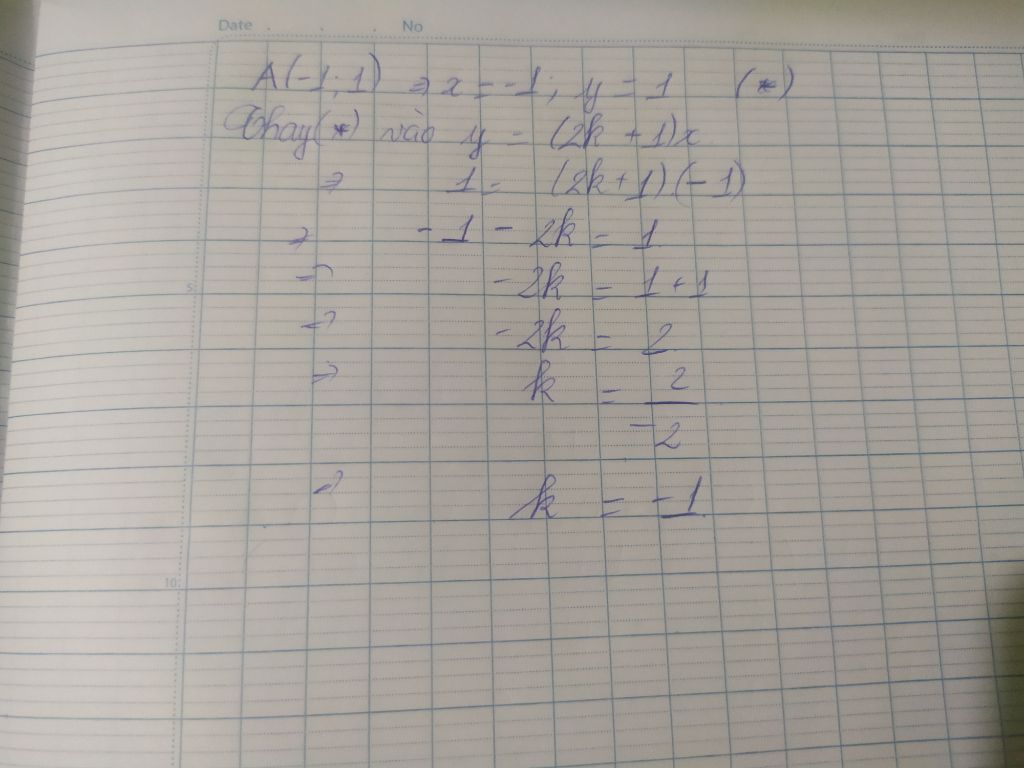 Date . . . No
A(-1; 1) ⇒ x = -1; y = 1 (*)
Thay (*) vào y = (2k + 1)x
⇒ 1 = (2k + 1)(-1)
⇒ -1 - 2k = 1
⇒ -2k = 1 + 1
5
⇒ -2k = 2
⇒ k = 2
-2
⇒ k = -1
10